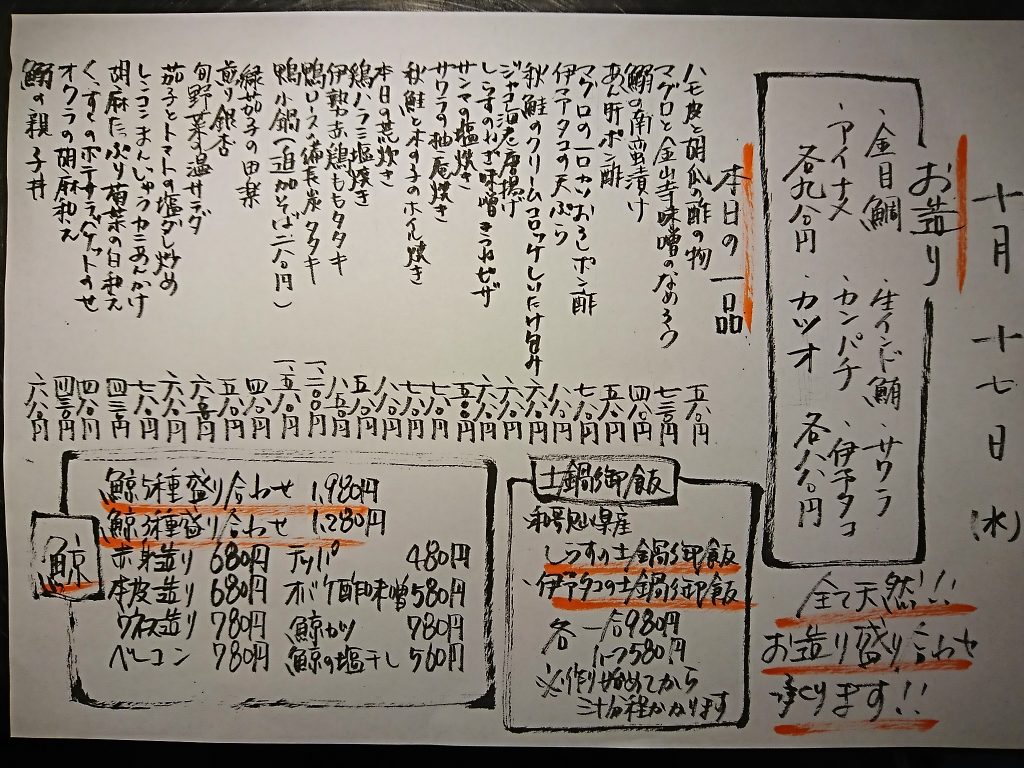 十月十七日(水)
お造り
・金目鯛 ・生インド鮪 ・サワラ
・アイナメ ・カンパチ ・伊予タコ
各九八〇円 ・カツオ 各八八〇円
全て天然!!
お造り盛り合わせ
承ります!!
本日の一品
ハモ皮と胡瓜の酢の物 五八〇円
マグロと金山寺味噌のなめろう 七三〇円
鰯の南蛮漬け 四八〇円
あん肝ポン酢 五八〇円
マグロの一口カツおろしポン酢 七八〇円
伊予タコの天ぷら 八八〇円
秋鮭のクリームコロッケしいたけ包み 六八〇円
ジャコ海老唐揚げ 六八〇円
しらすのねぎ味噌きつねピザ 六八〇円
サンマの塩焼き 五〇〇円
サワラの柚庵焼き 七八〇円
秋鮭と木の子のホイル焼き 七八〇円
本日の荒炊き 八八〇円
鶏ハラミ塩焼き 五八〇円
伊勢赤鶏ももタタキ 八五〇円
鴨ロースの備長炭タタキ 一、二〇〇円
鴨小鍋(追加そば二八〇円) 一、五八〇円
緑茄子の田楽 四八〇円
煎り銀杏 五八〇円
旬野菜の温サラダ 六五〇円
茄子とトマトの塩ダレ炒め 六八〇円
レンコンまんじゅうカニあんかけ 七八〇円
胡麻たっぷり菊菜の白和え 四三〇円
のポテサラバゲットのせ 四八〇円
オクラの胡麻和え 四三〇円
鰯の親子丼 六八〇円
土鍋御飯
和歌山県産
しらすの土鍋御飯
・伊予タコの土鍋御飯
各 一合980円
ハーフ580円
※作り始めてから
三十分程かかります
鯨
鯨5種盛り合わせ 1,980円
鯨3種盛り合わせ 1,280円
赤身造り 680円 テッパ 480円
本皮造り 680円 オバケ酢味噌 580円
ウネス造り 780円 鯨カツ 780円
ベーコン 780円 鯨の塩干し 560円